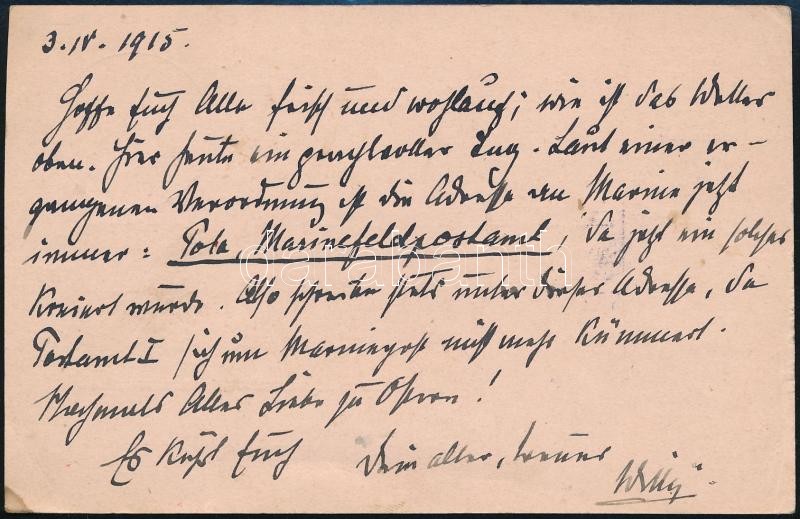 3.IV.1915.
Hoffe Euch Alle frisch und wohlauf; wie ist das Wetter
oben. Hier heute ein prachtvoller Tag. Laut einer er-
gangenen Verordnung ist die Adresse an Marine jetzt
immer: Pola, Marinefeldpostamt, da jetzt ein solches
kreiert wurde. Also schreibe stets unter dieser Adresse, da
Postamt I sich um Marinepost nicht mehr kümmert.
Nochmals Alles Liebe zu Ostern!
Es küßt Euch Dein alter, treuer
Willy
darabanth